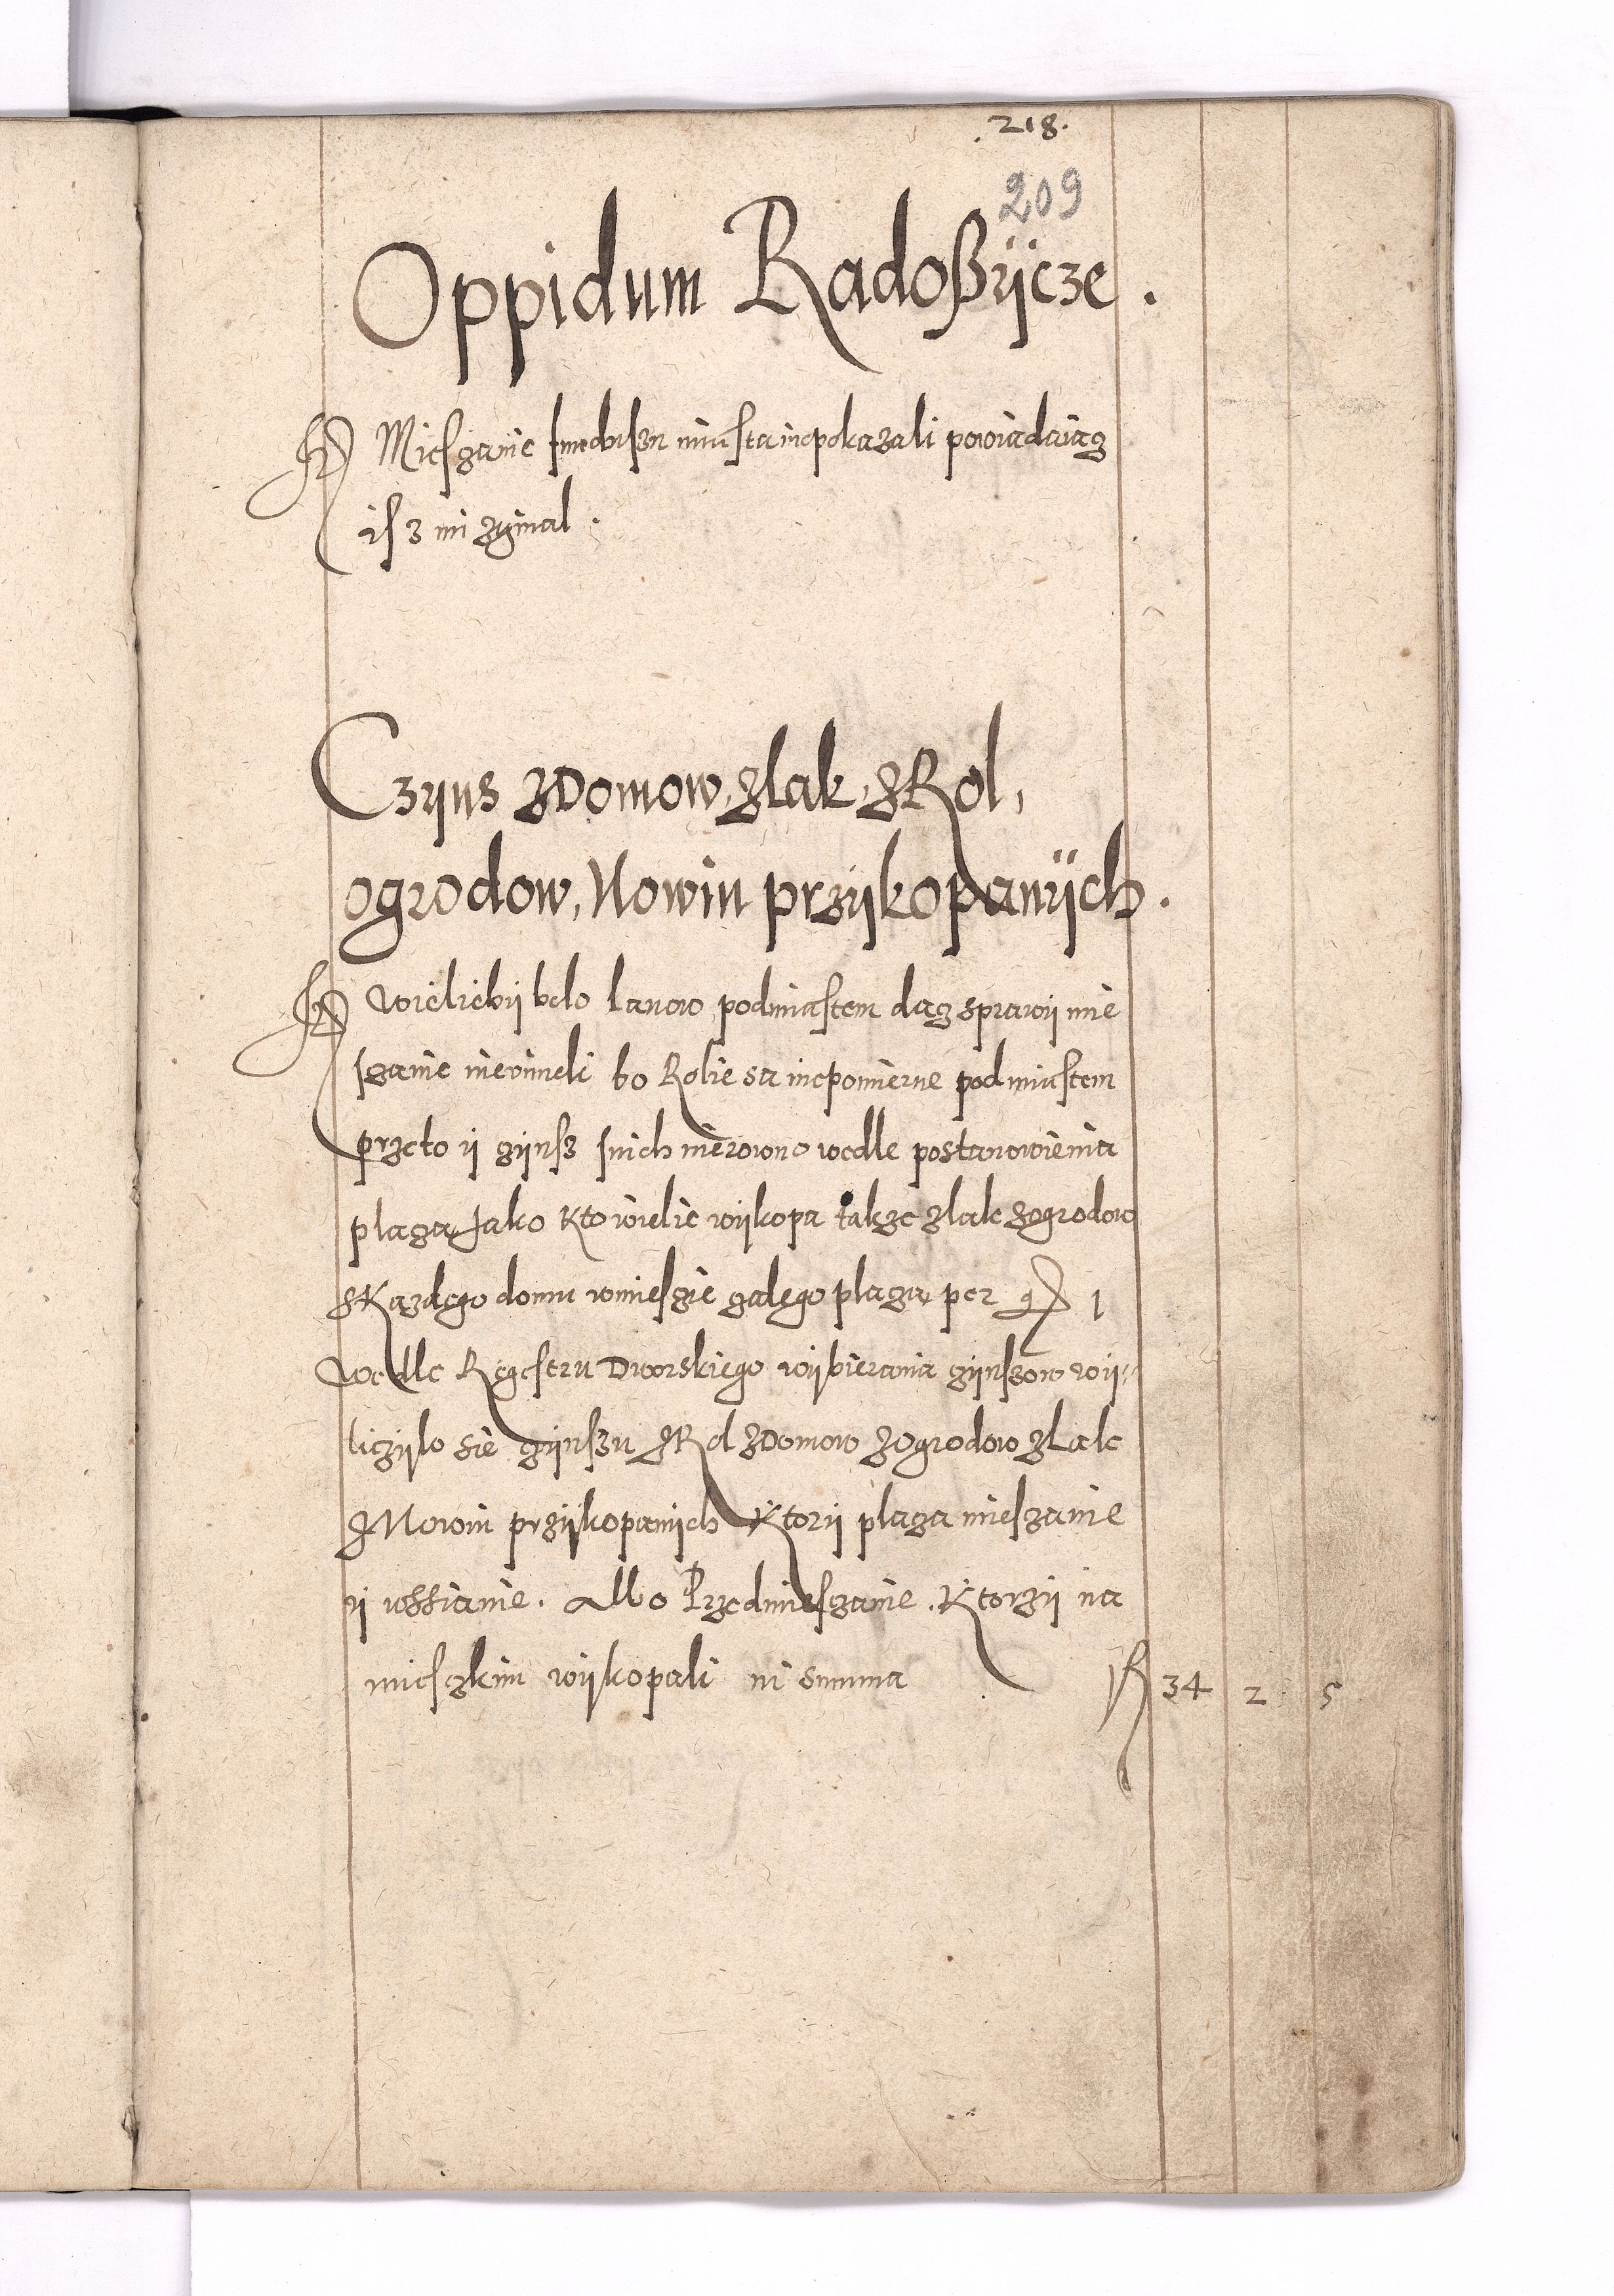 218.
209
Oppidum Radoßÿcze.
Miesczanie miasta niepokazali powiadaiacz
isz im zginal.
Czÿns z Domow, z lak, z Rol,
ogrodow, Nowin przÿkopanÿch.
Wielieby belo lanow pod miastem dacz sprawÿ mie
sczanie nievmieli bo Rolie sa niepomierne pod miastem
przeto ÿ czÿnsz snich nierowno wedle postanowienia
placza Jako kto wielie wÿkopa takze z lak z ogrodow
s Kazdego domu wmiescie czalego placza per gr 1
Wedle Regestru Dworskiego wÿbierania czÿnszow wÿ-
liczÿlo sie czÿnszu z Rol z Domow z Ogrodow z Lak
z Nowin przÿkopanÿch Ktorÿ placza miesczanie
ÿ wssianie. Albo Przedmiesczanie. Ktorzÿ na
miesczkim wÿkopali in summa 34 2 5